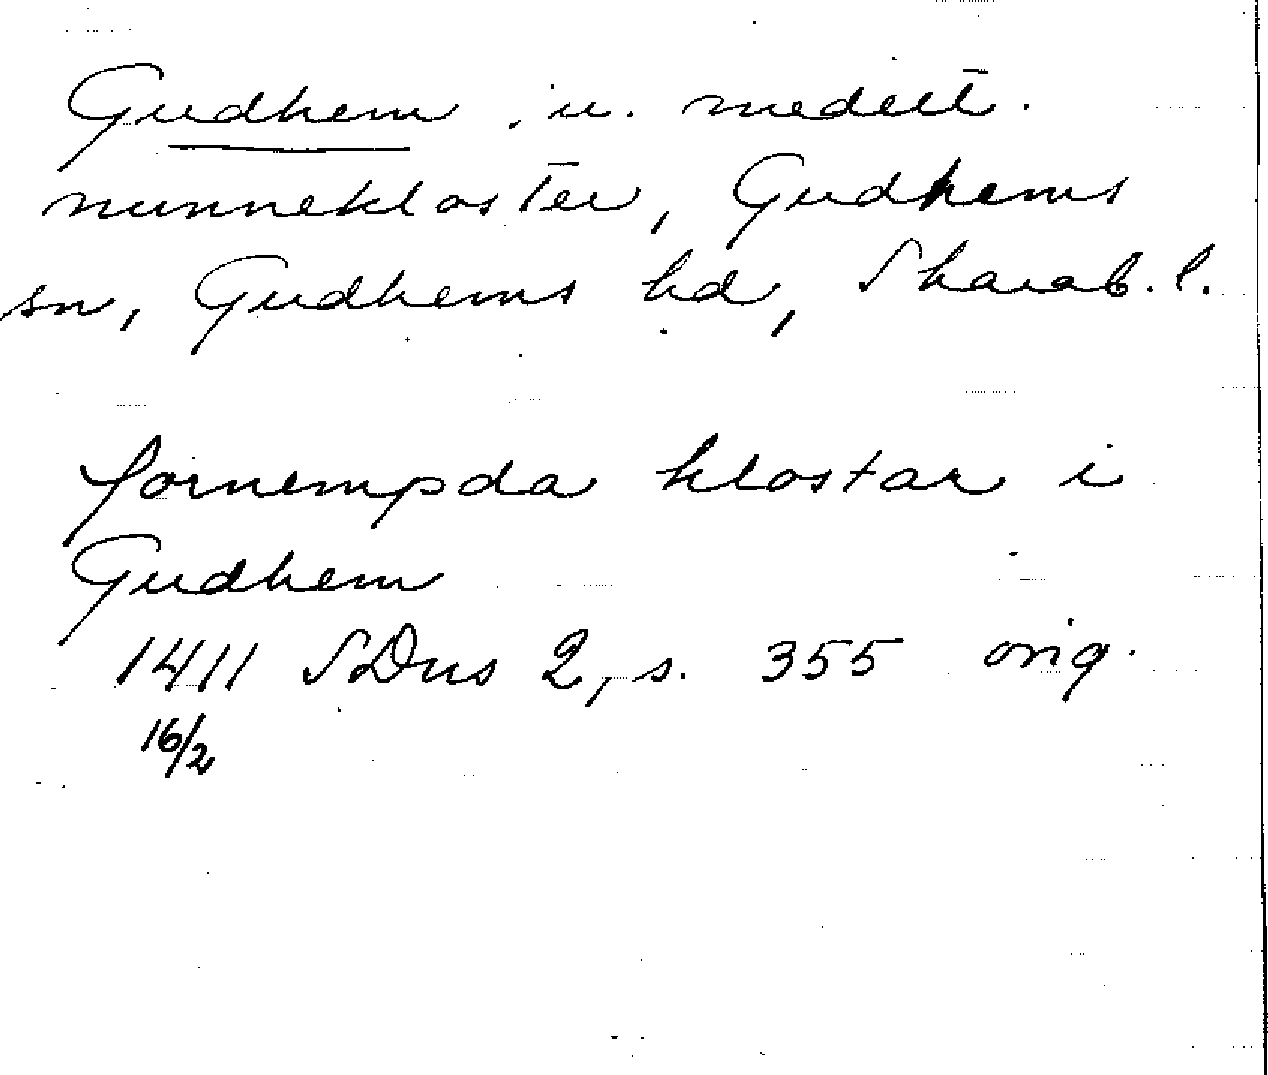 Gudhem, n. medelt.
nunnekloster, Gudhems
sn, Gudhems hd, Skarab. l.
fornempda klostar i
Gudhem
1411 SDns 2, s. 355 orig.
16/2